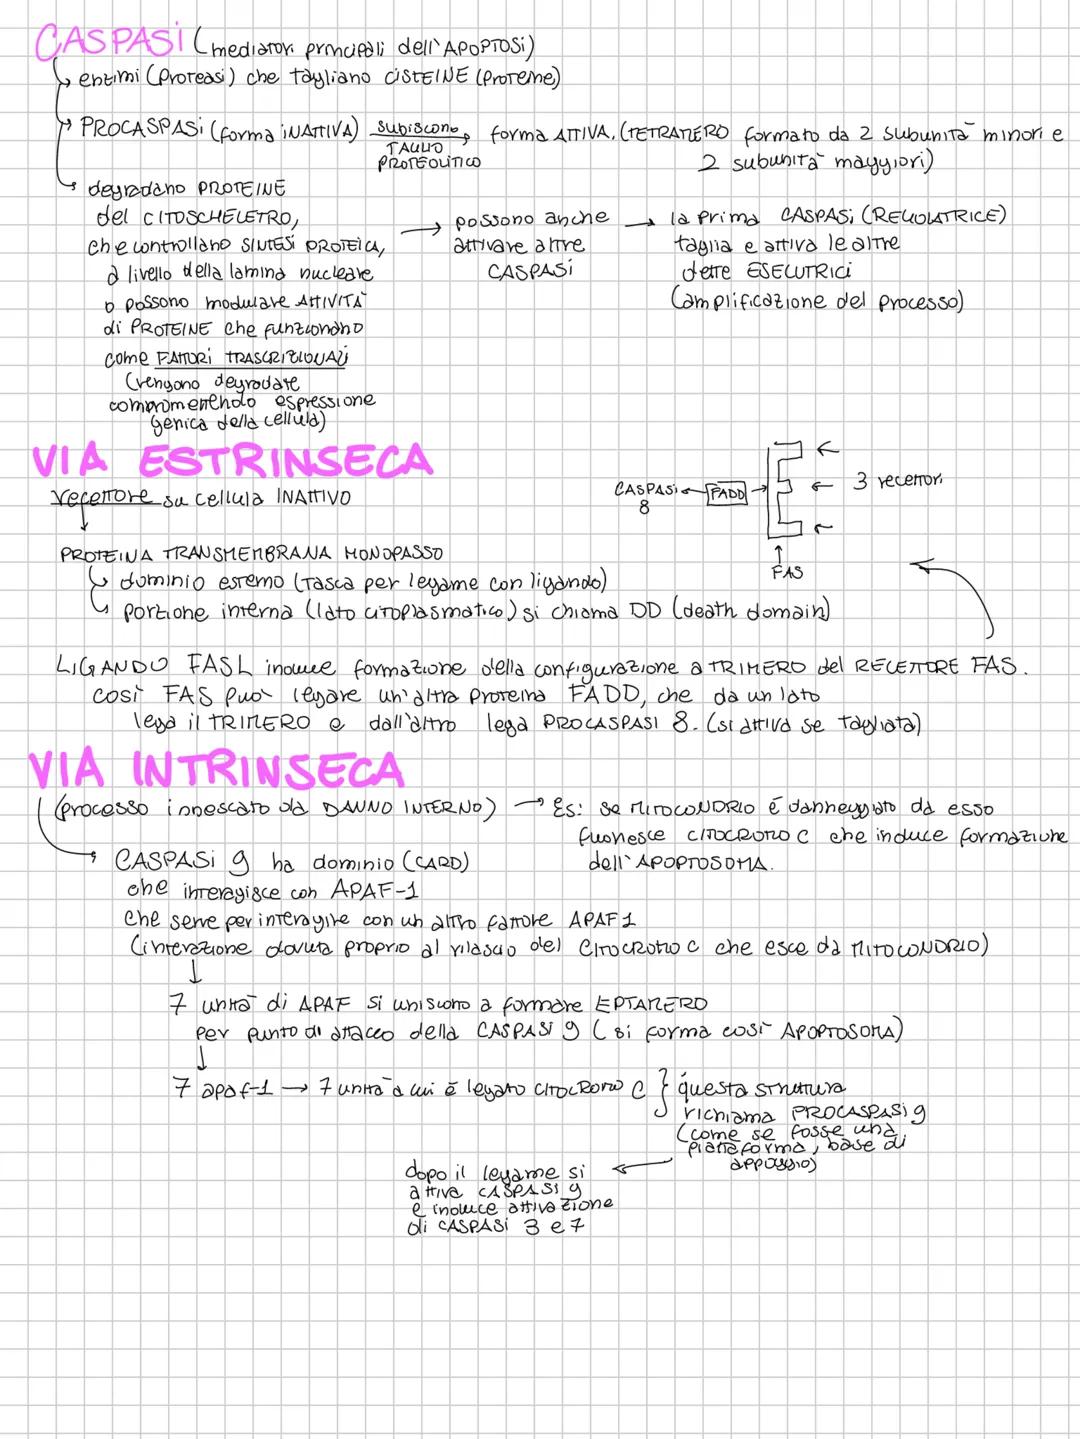 CASPASI (mediatori principali dell'APOPTOSI)
enzimi (Proteasi) che tagliano CISTEINE (Proteine)
PROCASPASI (forma INATTIVA) subiscono TAGLIO PROTEOLITICO forma ATTIVA. (TETRAMERO formato da 2 subunità minori e
2 subunità maggiori)
degradano PROTEINE
del CITOSCHELETRO,
che controllano SINTESI PROTEICA,
a livello della lamina nucleare
o possono modulare ATTIVITÀ
di PROTEINE che funzionano
come FATTORI TRASCRIZIONALI
(vengono degradate
compromettendo espressione
genica della cellula)
→ possono anche
attivare altre
CASPASI
→ la prima CASPASI (REGOLATRICE)
taglia e attiva le altre
dette ESECUTRICI
(amplificazione del processo)
VIA ESTRINSECA
recettore su cellula INATTIVO
PROTEINA TRANSMEMBRANA MONOPASSO
dominio esterno (tasca per legame con ligando)
porzione interna (lato citoplasmatico) si chiama DD (death domain)
CASPASI 8
FADD
3 recettori
FAS
LIGANDO FASL induce formazione della configurazione a TRIMERO del RECETTORE FAS.
così FAS può legare un'altra proteina FADD, che da un lato
lega il TRIMERO e dall'altro lega PROCASPASI 8. (si attiva se tagliata)
VIA INTRINSECA
(processo innescato da DANNO INTERNO) → Es: se MITOCONDRIO è danneggiato da esso
fuoriesce CITOCROMO C che induce formazione
dell'APOPTOSOMA.
CASPASI 9 ha dominio (CARD)
che interagisce con APAF-1
che serve per interagire con un altro fattore APAF1
(interazione dovuta proprio al rilascio del CITOCROMO C che esce da MITOCONDRIO)
↓
7 unità di APAF si uniscono a formare EPTAMERO
per punto di attacco della CASPASI 9 (si forma così APOPTOSOMA)
↓
7 apaf-1 → 7 unità a cui è legato CITOCROMO C } questa struttura
richiama PROCASPASI 9
(come se fosse una
piattaforma, base di
appoggio)
dopo il legame si
attiva CASPASI 9
e induce attivazione
di CASPASI 3 e 7